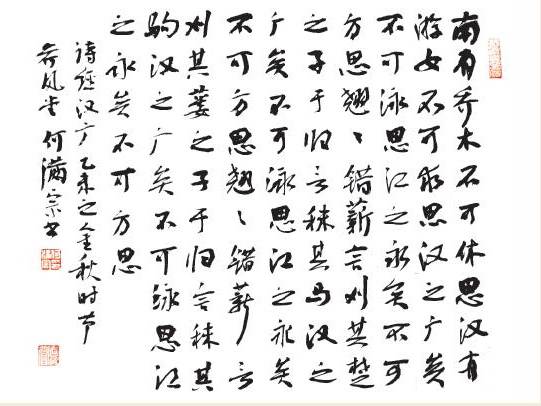 南有乔木不可休思汉有
游女不可求思汉之广矣
不可泳思江之永矣不可
方思翘〻错薪言刈其楚
之子于归言秣其马汉之
广矣不可泳思江之永矣
不可方思翘〻错薪言
刈其蒌之子于归言秣其
驹汉之广矣不可泳思江
之永矣不可方思
诗经汉广乙未之金秋时节
荷风堂何满宗书